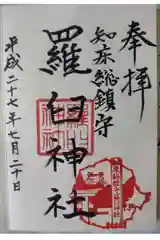 奉拝
知床総鎮守
羅臼神社
平成二十七年七月二十日